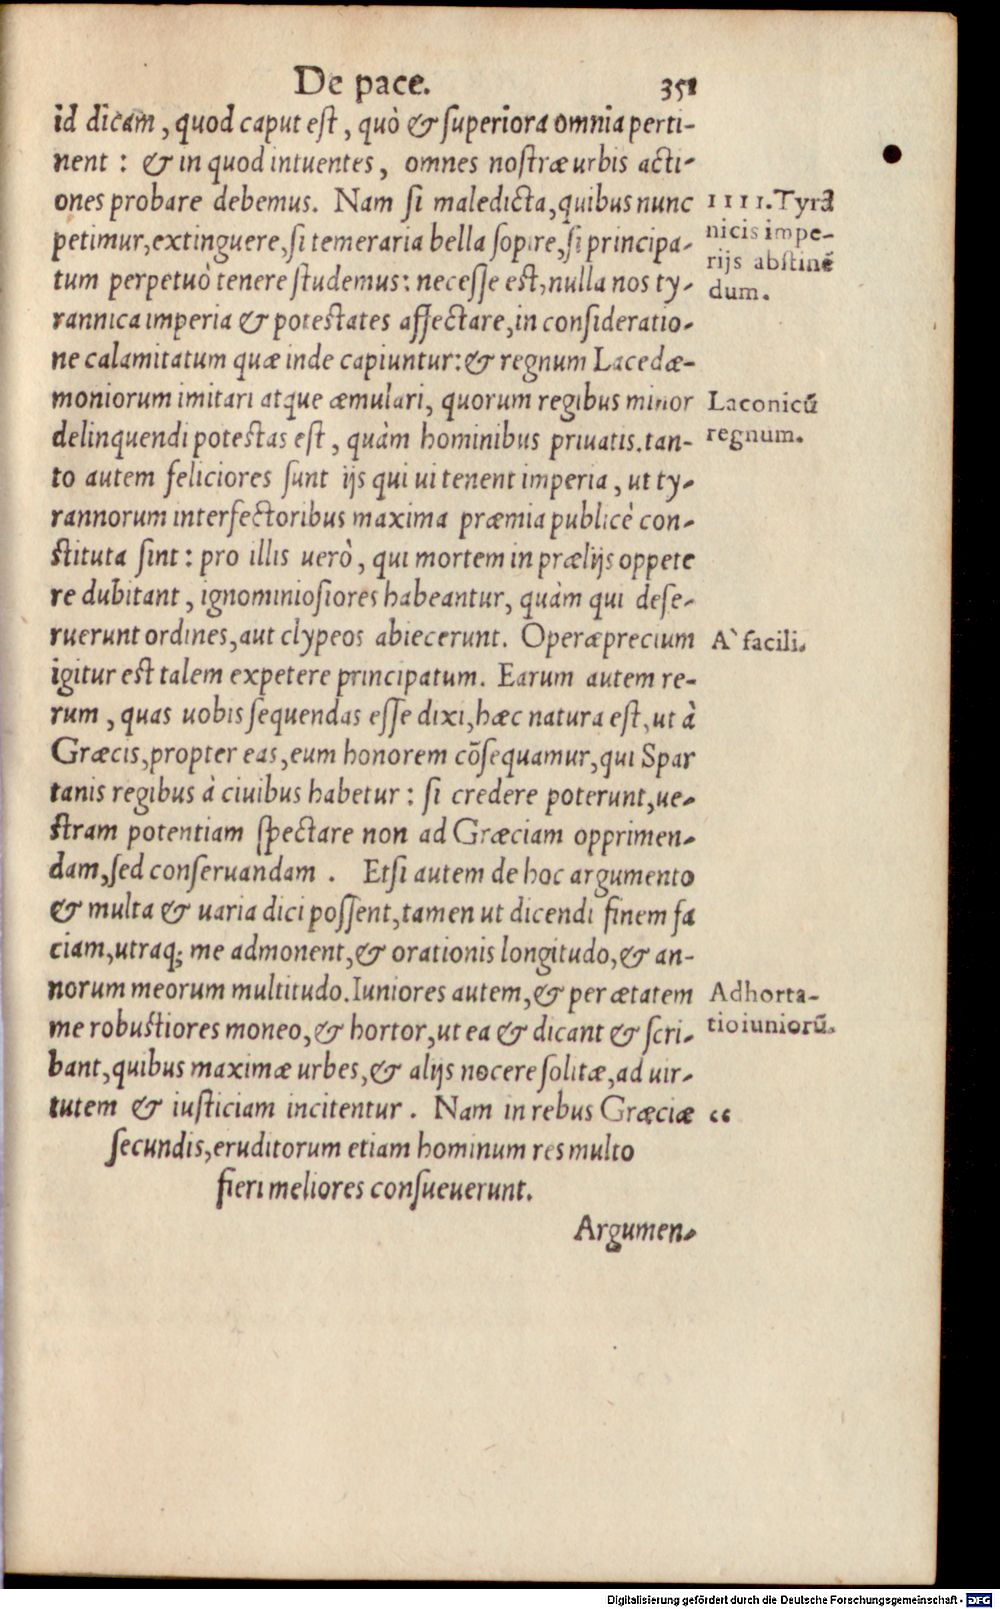 De pace. 351
id dicam, quod caput est, quò & superiora omnia perti-
nent : & in quod intuentes, omnes nostræ urbis acti-
ones probare debemus. Nam si maledicta, quibus nunc
petimur, extinguere, si temeraria bella sopire, si principa-
tum perpetuò tenere studemus: necesse est, nulla nos ty-
rannica imperia & potestates affectare, in consideratio-
ne calamitatum quæ inde capiuntur: & regnum Lacedæ-
moniorum imitari atque æmulari, quorum regibus minor
delinquendi potestas est, quàm hominibus priuatis. tan-
to autem feliciores sunt ijs qui ui tenent imperia, ut ty-
rannorum interfectoribus maxima præmia publicè con-
stituta sint: pro illis uerò, qui mortem in prælijs oppete
re dubitant, ignominiosiores habeantur, quàm qui dese-
ruerunt ordines, aut clypeos abiecerunt. Operæprecium
igitur est talem expetere principatum. Earum autem re-
rum, quas uobis sequendas esse dixi, hæc natura est, ut à
Græcis, propter eas, eum honorem cõsequamur, qui Spar
tanis regibus à ciuibus habetur: si credere poterunt, ue-
stram potentiam spectare non ad Græciam opprimen-
dam, sed conseruandam. Etsi autem de hoc argumento
& multa & uaria dici possent, tamen ut dicendi finem fa
ciam, utraq; me admonent, & orationis longitudo, & an-
norum meorum multitudo. Iuniores autem, & per ætatem
me robustiores moneo, & hortor, ut ea & dicant & scri-
bant, quibus maximæ urbes, & alijs nocere solitæ, ad uir-
tutem & iusticiam incitentur. Nam in rebus Græciæ
secundis, eruditorum etiam hominum res multo
fieri meliores consueuerunt.
Argumen-
IIII. Tyrã
nicis impe-
rijs abstinẽ
dum.
Laconicũ
regnum.
A` facili.
Adhorta-
tio iuniorũ.
“
Digitalisierung gefördert durch die Deutsche Forschungsgemeinschaft - DFG